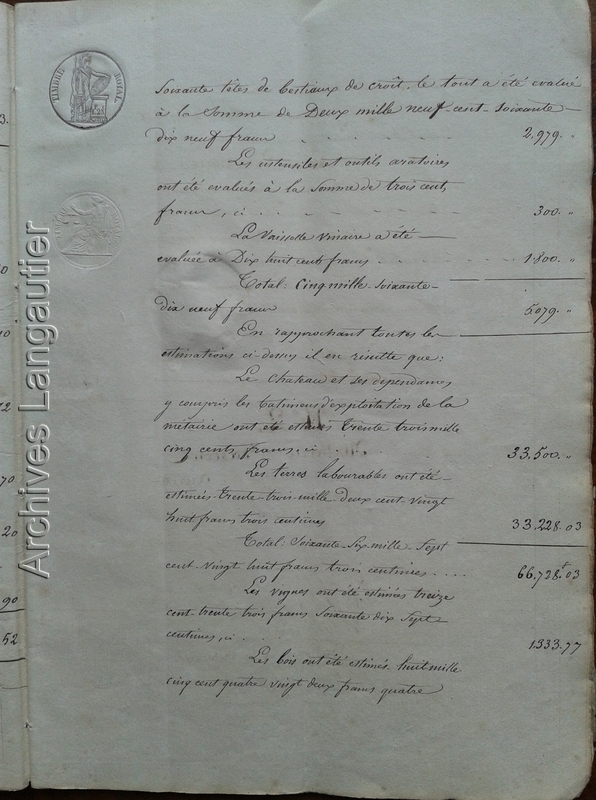 TIMBRE ROYAL
Soixante têtes de bestiaux de croît, le tout a été évalué
à la Somme de Deux mille neuf-cent-soixante
dix neuf francs 2,979. "
Les ustensiles et outils aratoires
ont été évalués à la Somme de trois cents
francs, ci 300. "
La Vaisselle vinaire a été
evaluée à Dix huit cents francs 1,800. "
Total: Cinq mille Soixante-
dix neuf francs 5,079. "
En rapprochant toutes les
estimations ci-dessus il en résulte que:
Le Chateau et ses dependances
y compris les batimens d'exploitation de la
métairie ont été estimés trente trois mille
cinq cents francs, ci 33,500. "
Les terres labourables ont été
estimées trente-trois-mille-deux cent-vingt
huit francs trois centimes 33,228.03
Total: Soixante-Six-mille-Sept
cent-vingt huit francs trois centimes 66,728.f03
Les vignes ont été estimées treize
cent-trente trois francs Soixante dix Sept
centimes, ci 1333.77
Les bois ont été estimés huit mille
cinq cent quatre vingt deux francs quatre
3.
0
10
72
70
20
90
52
Archives Langautier